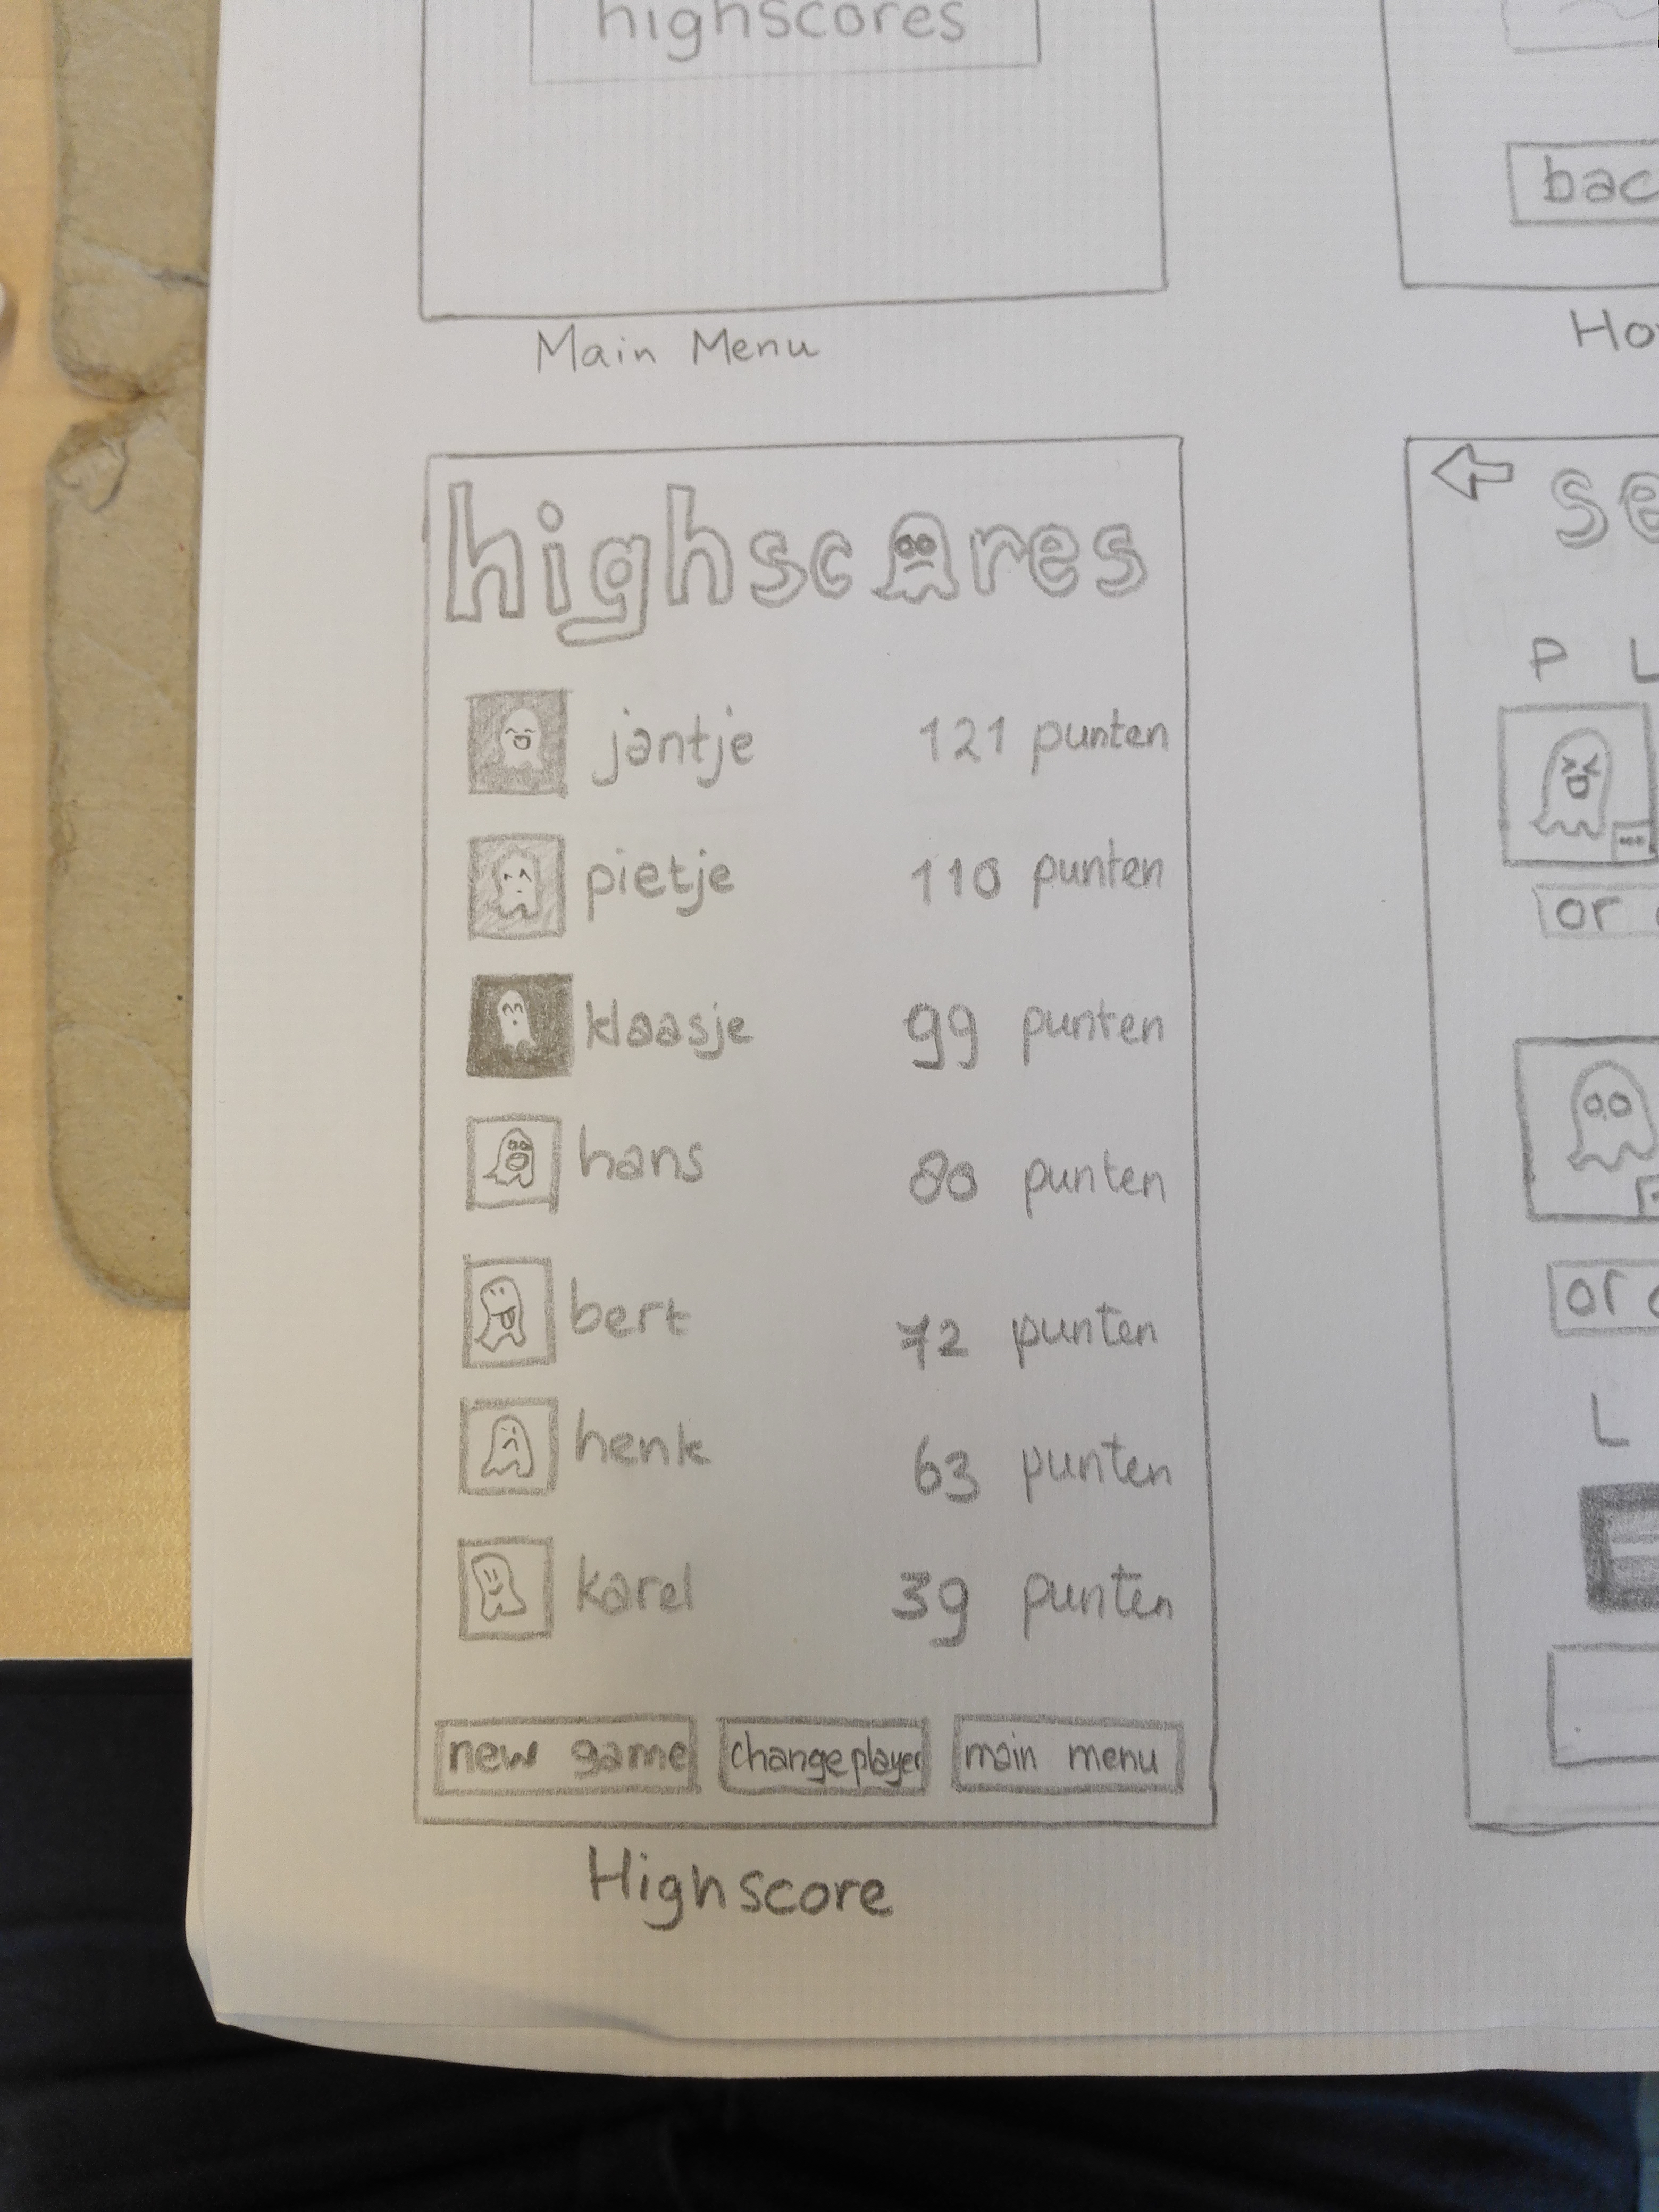 highscores
bac
Main Menu
Ho
highscores
se
P L
jantje 121 punten
pietje 110 punten
or
klaasje 99 punten
hans 80 punten
bert 72 punten
or
henk 63 punten
L
karel 39 punten
new game changeplayer main menu
Highscore